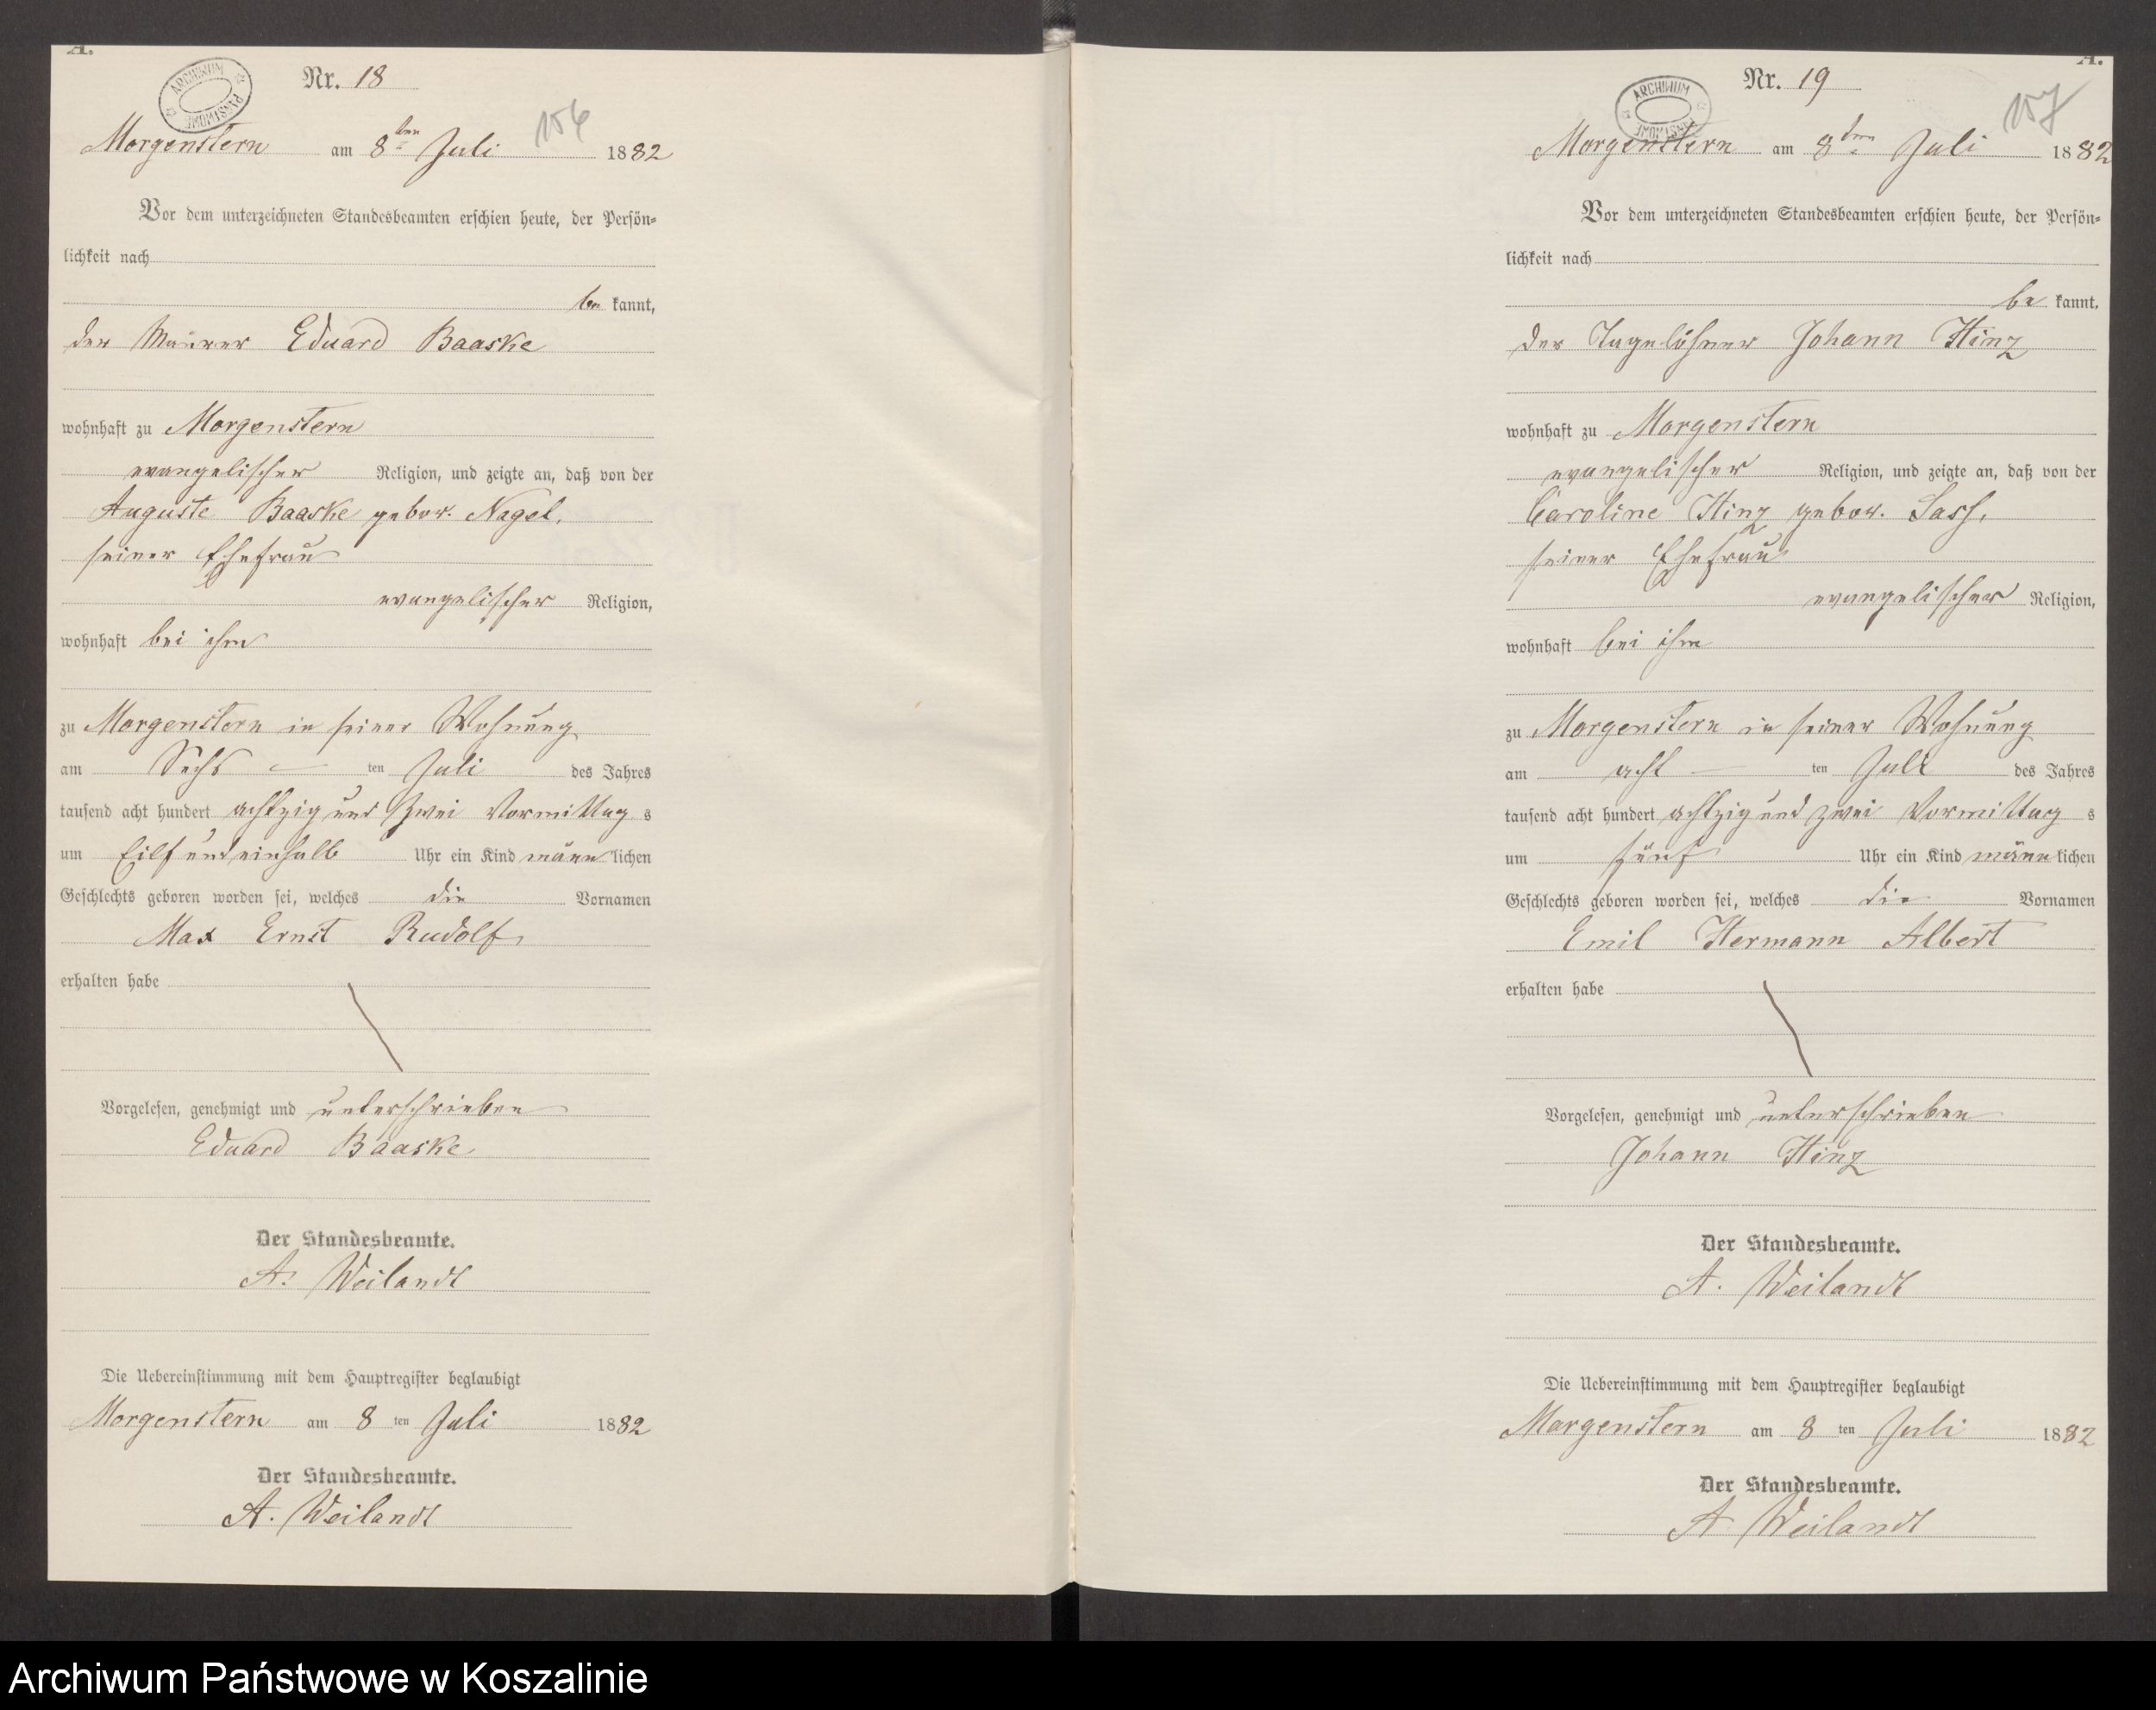 A.
ARCHIWUM PAŃSTWOWE
Nr. 18
156
Morgenstern am 8ten Juli 1882
Vor dem unterzeichneten Standesbeamten erschien heute, der Persön-
lichkeit nach
be kannt,
der Maurer Eduard Baaske
wohnhaft zu Morgenstern
evangelischer Religion, und zeigte an, daß von der
Auguste Baaske gebor. Nagel,
seiner Ehefrau
evangelischer Religion,
wohnhaft bei ihm
zu Morgenstern in seiner Wohnung
am Sechs – ten Juli des Jahres
tausend acht hundert achtzig und zwei Vormittag s
um Eilf und einhalb Uhr ein Kind männ lichen
Geschlechts geboren worden sei, welches die Vornamen
Max Ernst Rudolf,
erhalten habe
Vorgelesen, genehmigt und unterschrieben
Eduard Baaske
Der Standesbeamte.
A. Weilandt
Die Uebereinstimmung mit dem Hauptregister beglaubigt
Morgenstern am 8 ten Juli 1882
Der Standesbeamte.
A. Weilandt
A.
ARCHIWUM PAŃSTWOWE
Nr. 19
157
Morgenstern am 8ten Juli 1882
Vor dem unterzeichneten Standesbeamten erschien heute, der Persön-
lichkeit nach
be kannt,
der Tagelöhner Johann Hinz
wohnhaft zu Morgenstern
evangelischer Religion, und zeigte an, daß von der
Caroline Hinz gebor. Sass,
seiner Ehefrau
evangelischer Religion,
wohnhaft bei ihm
zu Morgenstern in seiner Wohnung
am acht – ten Juli des Jahres
tausend acht hundert achtzig und zwei Vormittag s
um fünf Uhr ein Kind männ lichen
Geschlechts geboren worden sei, welches die Vornamen
Emil Hermann Albert
erhalten habe
Vorgelesen, genehmigt und unterschrieben
Johann Hinz
Der Standesbeamte.
A. Weilandt
Die Uebereinstimmung mit dem Hauptregister beglaubigt
Morgenstern am 8 ten Juli 1882
Der Standesbeamte.
A Weilandt
Archiwum Państwowe w Koszalinie